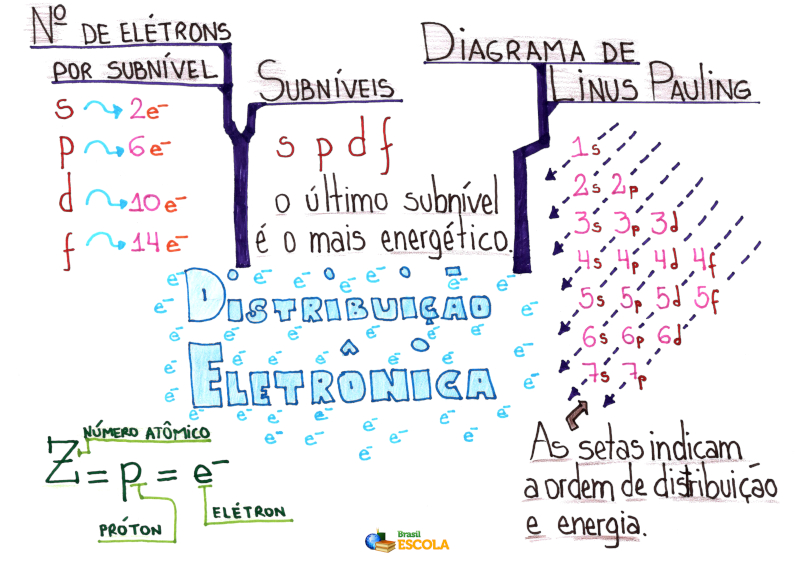 Nº DE ELÉTRONS
POR SUBNÍVEL
s 2e⁻
p 6e⁻
d 10e⁻
f 14e⁻
SUBNÍVEIS
s p d f
o último subnível
é o mais energético.
DIAGRAMA DE
LINUS PAULING
1s
2s 2p
3s 3p 3d
4s 4p 4d 4f
5s 5p 5d 5f
6s 6p 6d
7s 7p
As setas indicam
a ordem de distribuição
e energia.
DISTRIBUIÇÃO
ELETRÔNICA
e⁻ e⁻ e⁻ e⁻ e⁻ e⁻ e⁻ e⁻ e⁻ e⁻ e⁻ e⁻ e⁻ e⁻ e⁻ e⁻ e⁻ e⁻ e⁻ e⁻ e⁻ e⁻ e⁻ e⁻ e⁻ e⁻ e⁻ e⁻ e⁻ e⁻ e⁻ e⁻ e⁻ e⁻ e⁻
NÚMERO ATÔMICO
Z = p = e⁻
PRÓTON
ELÉTRON
Brasil
ESCOLA